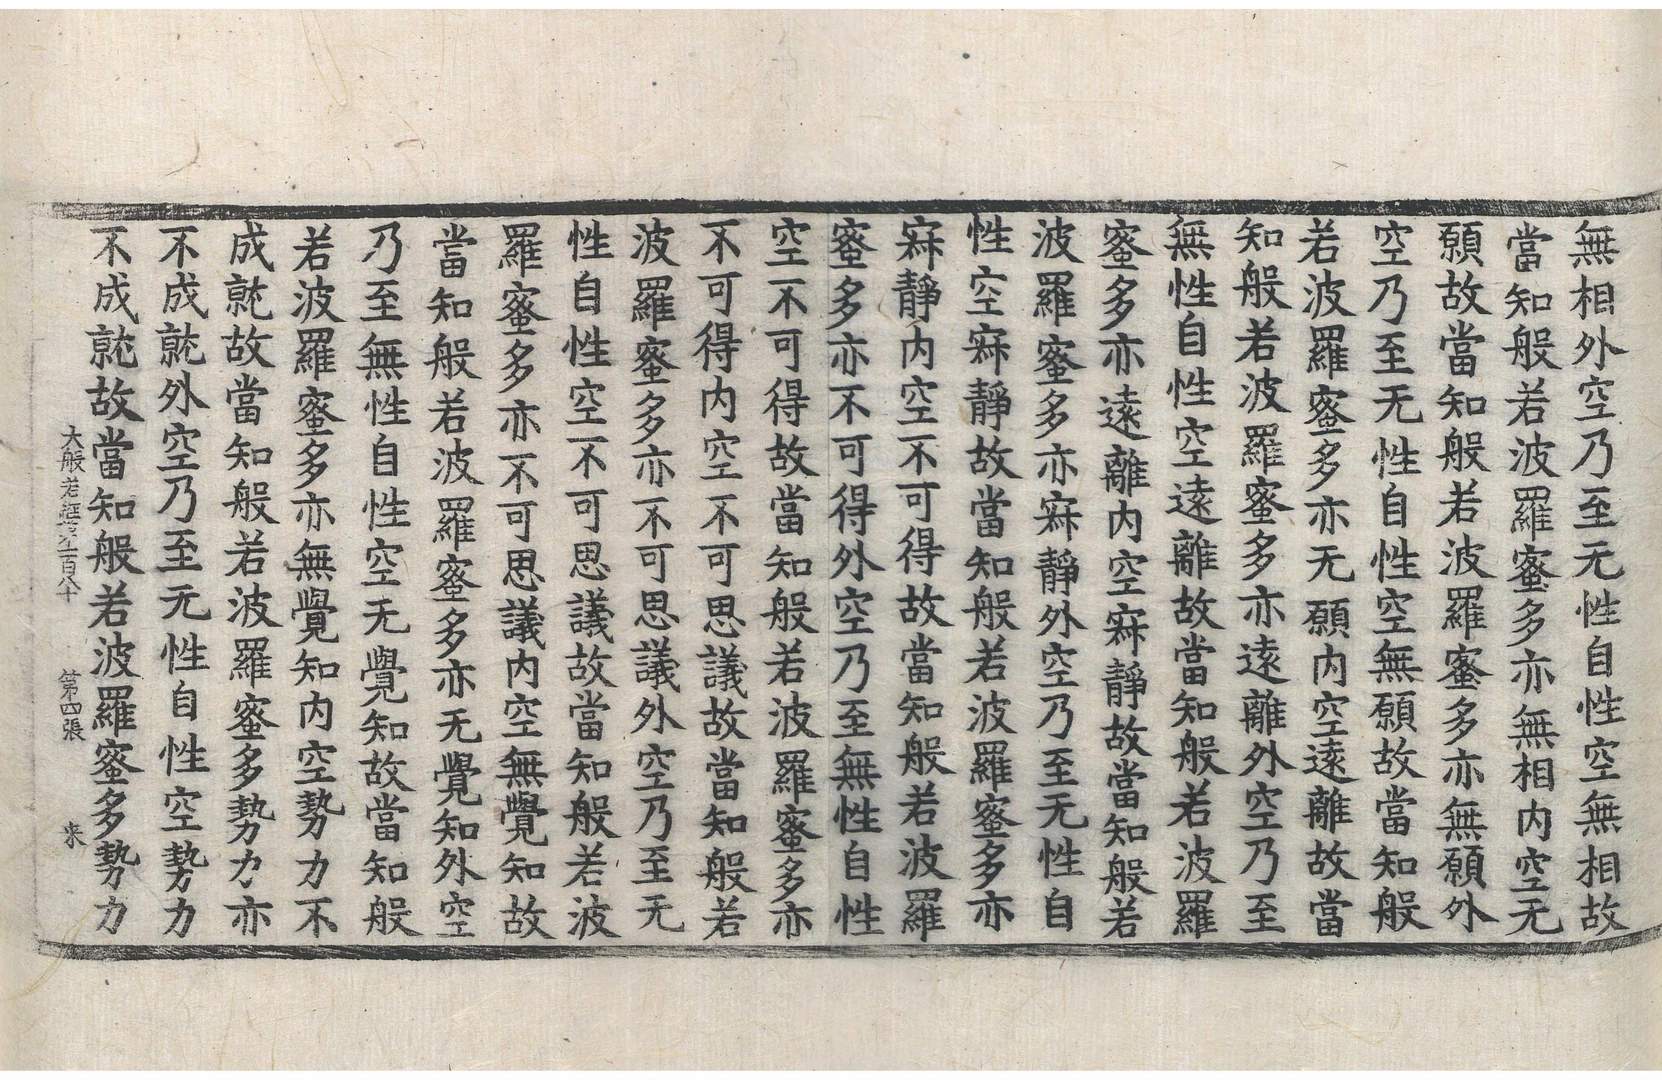 無相外空乃至无性自性空無相故
當知般若波羅蜜多亦無相内空无
願故當知般若波羅蜜多亦無願外
空乃至无性自性空無願故當知般
若波羅蜜多亦无願内空遠離故當
知般若波羅蜜多亦遠離外空乃至
無性自性空遠離故當知般若波羅
蜜多亦遠離内空寂靜故當知般若
波羅蜜多亦寂靜外空乃至无性自
性空寂靜故當知般若波羅蜜多亦
寂靜内空不可得故當知般若波羅
蜜多亦不可得外空乃至無性自性
空不可得故當知般若波羅蜜多亦
不可得内空不可思議故當知般若
波羅蜜多亦不可思議外空乃至无
性自性空不可思議故當知般若波
羅蜜多亦不可思議内空無覺知故
當知般若波羅蜜多亦无覺知外空
乃至無性自性空无覺知故當知般
若波羅蜜多亦無覺知内空勢力不
成就故當知般若波羅蜜多勢力亦
不成就外空乃至无性自性空勢力
不成就故當知般若波羅蜜多勢力
大般若経卷一百八十 第四張 来